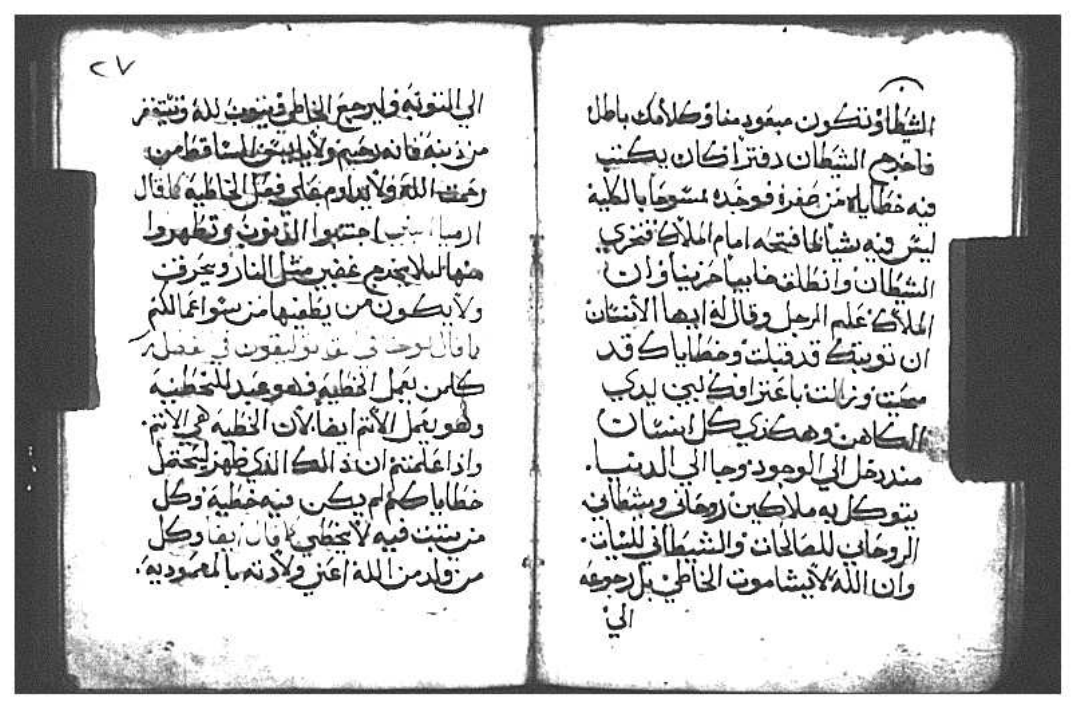 الشيطان وتكون مبعود منا وكلامك باطل
فاخرج الشيطان دفترا كان يكتب
فيه خطاياه من صغره فوجده ممسوحا بالكلية
ليس فيه شيا لما فتحه امام الملاك فخزي
الشيطان وانطلق خايبا حزينا وان
الملاك علم الرجل وقال له ايها الانسان
ان توبتك قد قبلت وخطاياك قد
محيت وزالت باعترافك لبين يدي
الكاهن وهكذي كل انسان
منذ دخل الي الوجود وجا الي الدنيا.
يتوكل به ملاكين روحاني وشيطاني.
الروحاني للصالحات والشيطاني للسيات.
وان الله لا يشا موت الخاطي بل رجوعه
الي
٢٧
الي التوبة وليرجع الخاطي ويتوب لله ويستغفر
من ذنبه فانه رحيم ولا يياس الساقط من
رحمت الله ولا يداوم علي فعل الخاطية كما قال
ارميا اجتنبوا الذنوب وتطهروا
منها ليلا يخرج غضبي مثل النار ويحرقت
ولا يكون من يطفيها من سوا عمالكم
كما قال يوحنا في
كلمن يعمل الخطية فهو عبد للخطية
وهو يعمل الاثم ايضا لان الخطيه هي الاثم.
واذا علمتم ان ذالك الذي ظهر ليحتمل
خطاياكم لم يكن فيه خطية وكل
من يثبت فيه لا يخطي كما قال ايضا وكل
من ولد من الله اعني ولادته بالمعمودية.